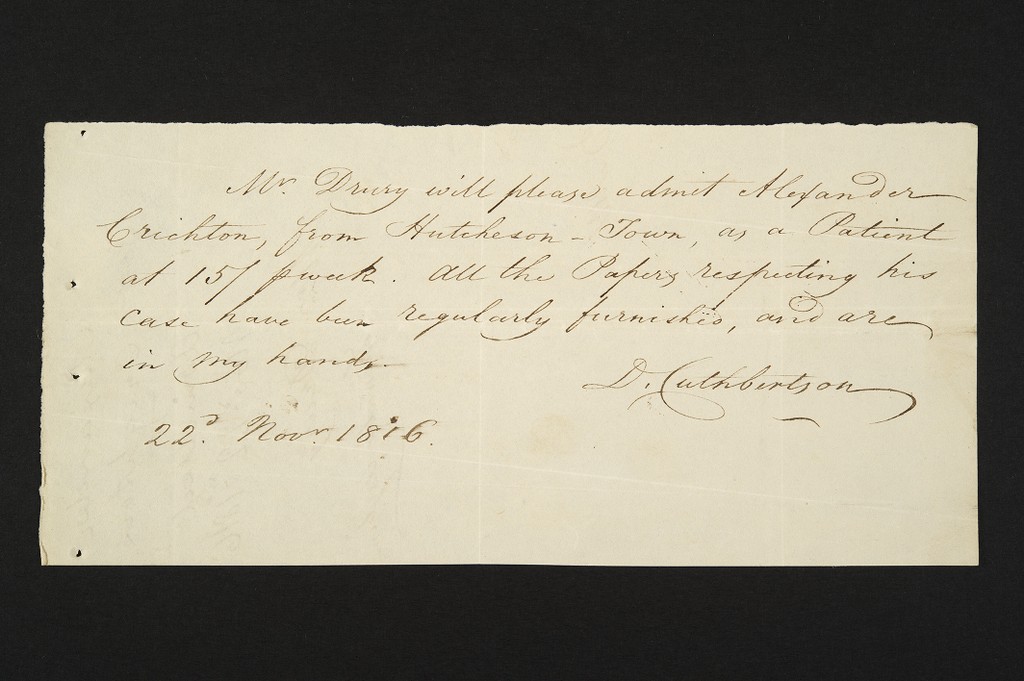 Mr. Drury will please admit Alexander
Crichton, from Hutcheson-Town, as a Patient
at 15/ ⅌ week. All the Papers respecting his
case have been regularly furnished, and are
in my hands.
D. Cuthbertson
22d. Novr. 1816.